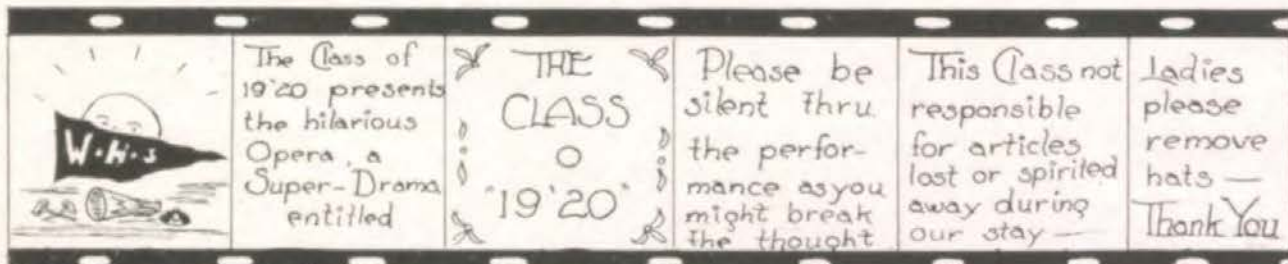 W·H·S
The Class of
19'20 presents
the hilarious
Opera, a
Super-Drama
entitled
THE
CLASS
O
"19'20"
Please be
silent thru
the perfor-
mance as you
might break
the thought
This Class not
responsible
for articles
lost or spirited
away during
our stay —
Ladies
please
remove
hats —
Thank You